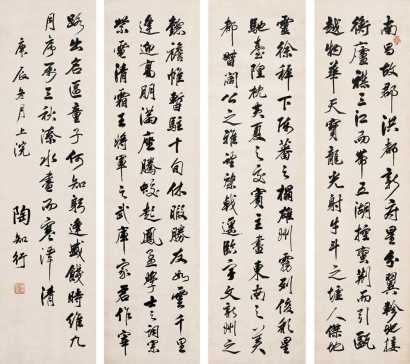 南昌故郡洪都新府星分翼軫地接
衡廬襟三江而帶五湖控蠻荊而引甌
越物華天寶龍光射牛斗之墟人傑地
靈徐稺下陳蕃之榻雄州霧列俊彩星
馳臺隍枕夷夏之交賓主盡東南之美
都督閻公之雅望棨戟遙臨宇文新州之
懿襜帷暫駐十旬休暇勝友如雲千里
逢迎高朋滿座騰蛟起鳳孟學士之詞宗
紫電清霜王將軍之武庫家君作宰
路出名區童子何知躬逢盛餞時維九
月序屬三秋潦水盡而寒潭清
庚辰月上浣
陶知行